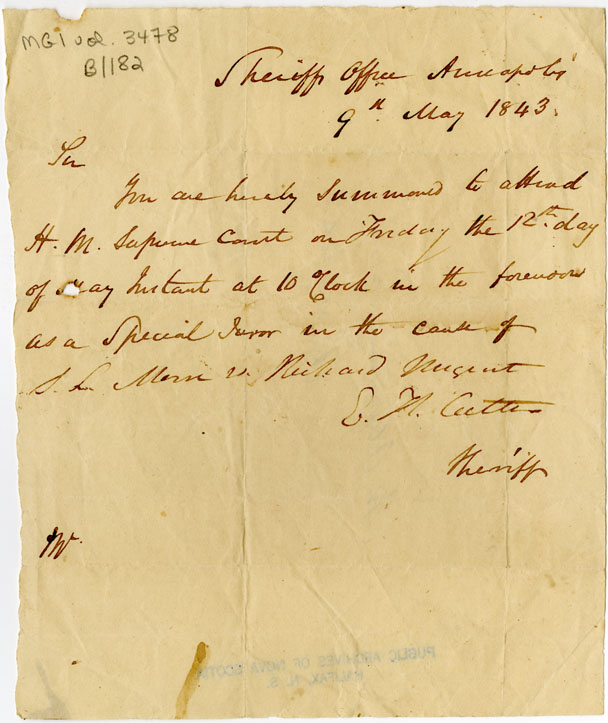 MG1 vol. 3478
B/182
Sheriffs Office Annapolis
9th May 1843.
Sir
You are hereby Summoned to attend
H. M. Supreme Court on Friday the 12th day
of May Instant at 10 O'Clock in the forenoon
as a Special Juror in the cause of
S. L. Morse vs. Richard Nugent
E. H. Cutler
Sheriff
Mr
PUBLIC ARCHIVES OF NOVA SCOTIA
HALIFAX, N. S.